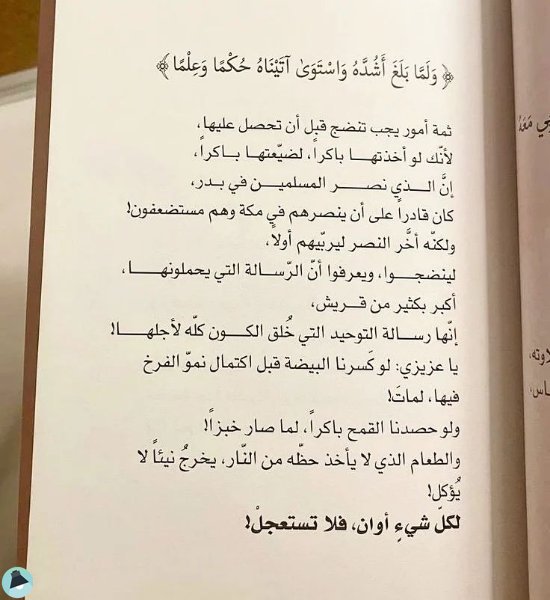 ﴿ وَلَمَّا بَلَغَ أَشُدَّهُ وَاسْتَوَىٰ آتَيْنَاهُ حُكْمًا وَعِلْمًا ﴾
ثمة أمور يجب تنضج قبل أن تحصل عليها،
لأنّك لو أخذتها باكراً، لضيّعتها باكراً،
إنَّ الذي نصر المسلمين في بدر،
كان قادراً على أن ينصرهم في مكة وهم مستضعفون!
ولكنّه أخَّر النصر ليربّيهم أولاً،
لينضجوا، ويعرفوا أنّ الرّسالة التي يحملونها،
أكبر بكثير من قريش،
إنّها رسالة التوحيد التي خُلق الكون كلّه لأجلها!
يا عزيزي: لو كَسرنا البيضة قبل اكتمال نموّ الفرخ
فيها، لماتَ!
ولو حصدنا القمح باكراً، لما صار خبزاً!
والطعام الذي لا يأخذ حظّه من النّار، يخرجُ نيئاً لا
يُؤكل!
لكلّ شيءٍ أوان، فلا تستعجلْ!
ي مَعَهُ
لاوته،
ناس،